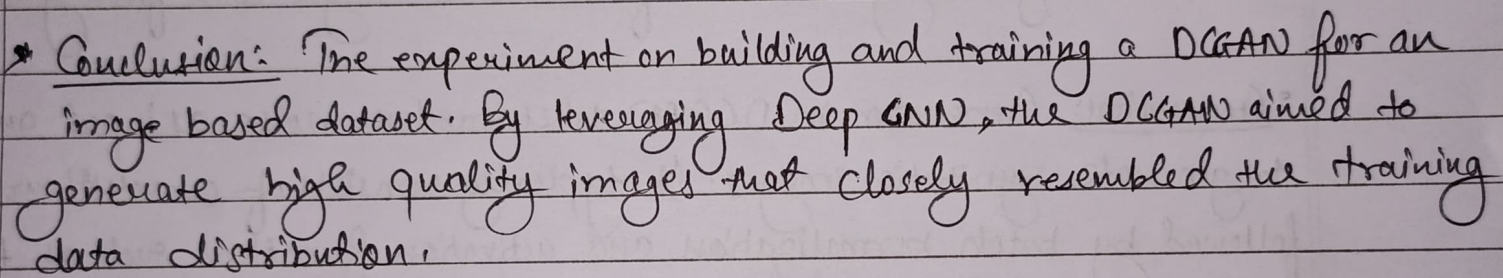 * Conclusion: The experiment on building and training a DCGAN for an
image based dataset. By leveraging Deep CNN, the DCGAN aimed to
generate high quality images that closely resembled the training
data distribution.